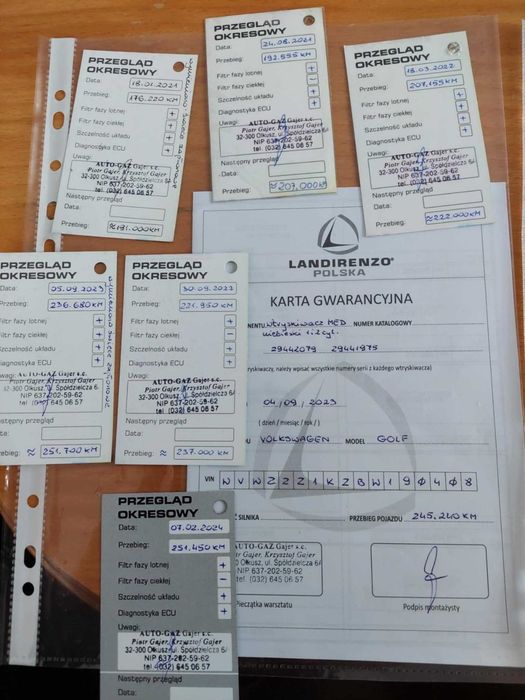 PRZEGLĄD
OKRESOWY
Data: 18.01.2021
Przebieg: 176.220 KM
Filtr fazy lotnej +
Filtr fazy ciekłej +
Szczelność układu +
Diagnostyka ECU +
Uwagi:
AUTO-GAZ Gajer s.c.
Piotr Gajer, Krzysztof Gajer
32-300 Olkusz, ul. Spółdzielcza 6/
NIP 637-202-59-62
tel. (032) 645 06 57
Następny przegląd
Data:
Przebieg: ≈191.000KM
PRZEGLĄD
OKRESOWY
Data: 24.08.2021
Przebieg: 192.555 KM
Filtr fazy lotnej +
Filtr fazy ciekłej –
Szczelność układu +
Diagnostyka ECU +
Uwagi:
AUTO-GAZ Gajer s.c.
Piotr Gajer, Krzysztof Gajer
32-300 Olkusz, ul. Spółdzielcza 6/
NIP 637-202-59-62
tel. (032) 645 06 57
Następny przegląd
Data:
Przebieg: ≈207.000KM
PRZEGLĄD
OKRESOWY
Data: 18.03.2022
Przebieg: 207.155 KM
Filtr fazy lotnej +
Filtr fazy ciekłej +
Szczelność układu +
Diagnostyka ECU +
Uwagi:
AUTO-GAZ Gajer s.c.
Piotr Gajer, Krzysztof Gajer
32-300 Olkusz, ul. Spółdzielcza 6/
NIP 637-202-59-62
tel. (032) 645 06 57
Następny przegląd
Data:
Przebieg: ≈222.000 KM
PRZEGLĄD
OKRESOWY
Data: 05.09.2023
Przebieg: 236.680KM
Filtr fazy lotnej +
Filtr fazy ciekłej +
Szczelność układu +
Diagnostyka ECU +
AUTO-GAZ Gajer s.c.
Piotr Gajer, Krzysztof Gajer
32-300 Olkusz, ul. Spółdzielcza 6/
NIP 637-202-59-62
tel. (032) 645 06 57
Następny przegląd
Data:
Przebieg: ≈ 251.700 KM
PRZEGLĄD
OKRESOWY
Data: 30.09.2022
Przebieg: 221.950 KM
Filtr fazy lotnej +
Filtr fazy ciekłej –
Szczelność układu +
Diagnostyka ECU +
Uwagi:
AUTO-GAZ Gajer s.c.
Piotr Gajer, Krzysztof Gajer
32-300 Olkusz, ul. Spółdzielcza 6/
NIP 637-202-59-62
tel. (032) 645 06 57
Następny przegląd
Data:
Przebieg: ≈ 237.000 KM
LANDIRENZO®
POLSKA
KARTA GWARANCYJNA
NENTU Wtryskiwacz MED NUMER KATALOGOWY
niebieski 1i2cyl.
29442079 29441975
tryskiwaczy, należy wpisać wszystkie numery serii z każdego wtryskiwacza)
04/09/2023
( dzień / miesiąc / rok / )
DU VOLKSWAGEN MODEL GOLF
VIN WVWZZZ1KZBW190408
SILNIKA PRZEBIEG POJAZDU 245.240 KM
AUTO-GAZ Gajer s.c.
Piotr Gajer, Krzysztof Gajer
Olkusz, ul. Spółdzielcza 6/
NIP 637-202-59-62
tel. (032) 645 06 57
Pieczątka warsztatu Podpis montażysty
PRZEGLĄD
OKRESOWY
Data: 07.02.2024
Przebieg: 251.450 KM
Filtr fazy lotnej +
Filtr fazy ciekłej –
Szczelność układu +
Diagnostyka ECU +
Uwagi:
AUTO-GAZ Gajer s.c.
Piotr Gajer, Krzysztof Gajer
32-300 Olkusz, ul. Spółdzielcza 6/
NIP 637-202-59-62
tel. (032) 645 06 57
Następny przegląd
Data: